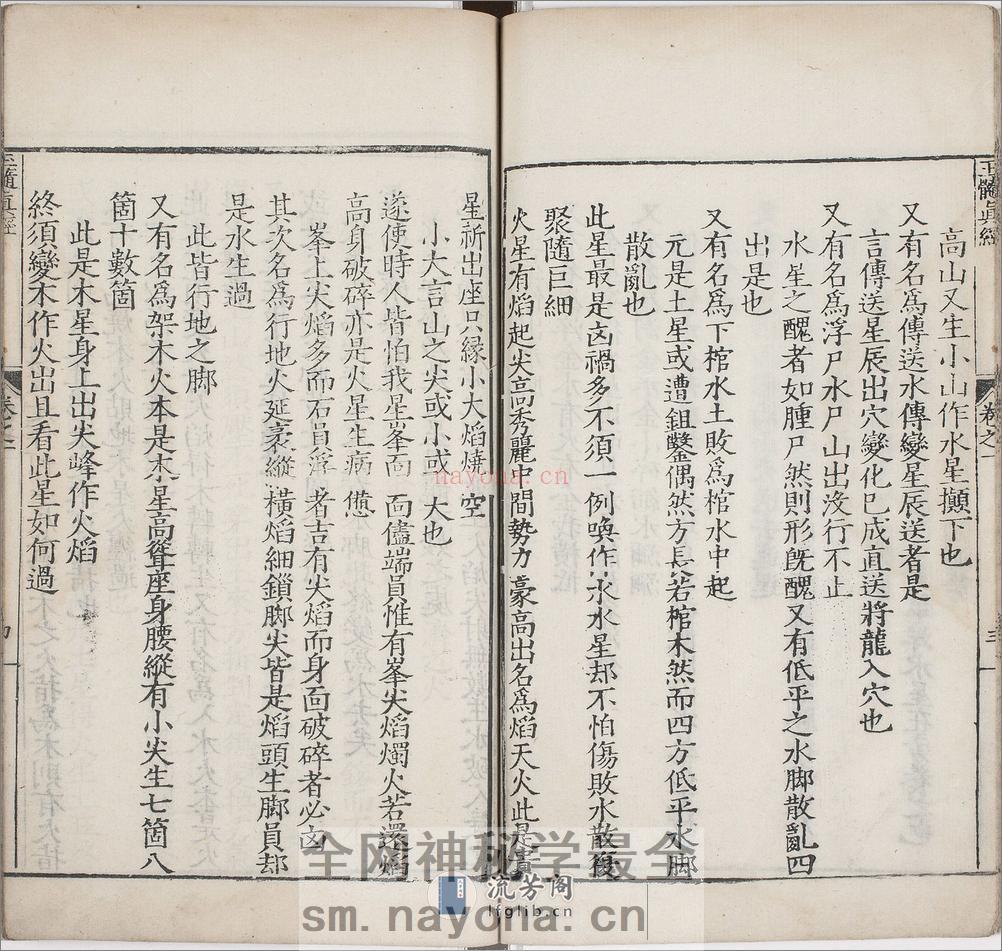 玉髓真經
卷之一
高山又生小山作水星攧下也
又有名爲傳送水傳變星辰送者是
言傳送星辰出穴變化已成直送將龍入穴也
又有名爲浮尸水尸山出没行不止
水星之醜者如腫尸然則形旣醜又有低平之水脚散亂四
出是也
又有名爲下棺水土敗爲棺水中起
元是土星或遭鉏鑿偶然方長若棺木然而四方低平水脚
散亂也
此星最是凶禍多不須一例喚作水水星却不怕傷敗水散復
聚隨巨細
火星有焰起尖高秀麗中間勢力豪高出名爲焰天火此是貴
星祈出座只縁小大焰燒空
小大言山之尖或小或大也
遂使時人皆怕我星峯靣靣儘端員惟有峯尖焰燭火若還焰
高身破碎亦是火星生病憊
峯上尖焰多而石員淨者吉有尖焰而身靣破碎者必凶
其次名爲行地火延袤縱橫焰細鎖脚尖皆是焰頭生脚員却
是水生過
此皆行地之脚
又有名爲架木火本是木星高聳座身腰縱有小尖生七箇八
箇十數箇
此是木星身上出尖峰作火焰
終須變木作火出且看此星如何過
玉髓真經
卷之一
nayona.cn
全网神秘学最全
流芳阁
lfglib.cn
sm.nayona.cn